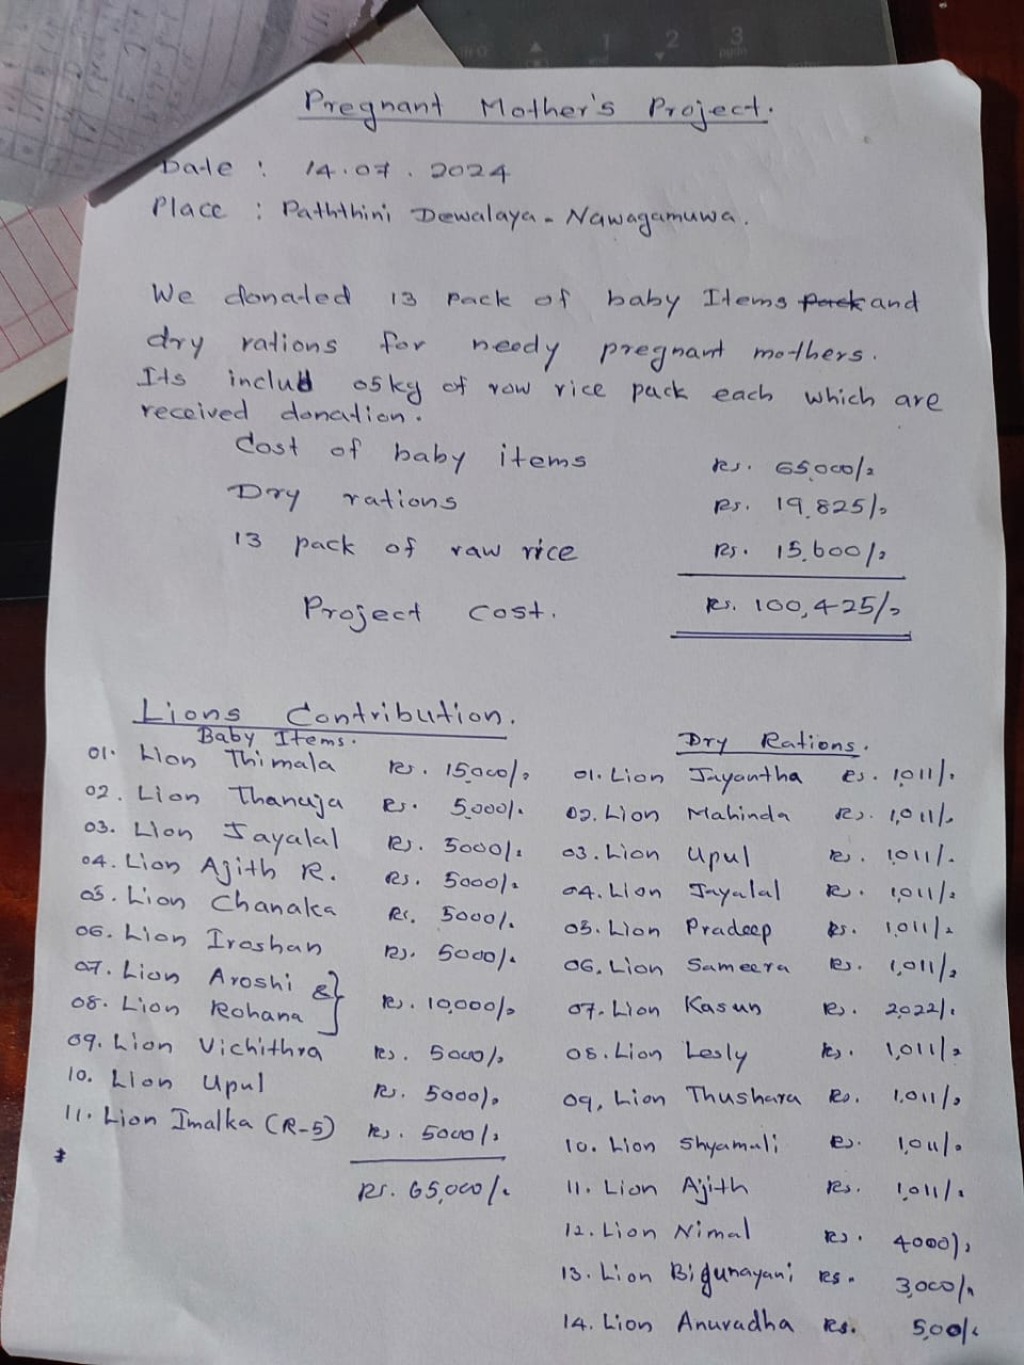 Pregnant Mother's Project.
Date : 14.07.2024
Place : Paththini Dewalaya - Nawagamuwa.
We donated 13 Pack of baby Items pack and
dry rations for needy pregnant mothers.
Its includ 05kg of row rice pack each which are
received donation.
Cost of baby items Rs. 65,000/=
Dry rations Rs. 19,825/=
13 pack of raw rice Rs. 15,600/=
Project Cost. Rs. 100,425/=
Lions Contribution.
Baby Items.
01. Lion Thimala Rs. 15,000/=
02. Lion Thanuja Rs. 5,000/=
03. Lion Jayalal Rs. 5000/=
04. Lion Ajith R. Rs. 5000/=
05. Lion Chanaka Rs. 5000/=
06. Lion Iroshan Rs. 5000/=
07. Lion Aroshi &
08. Lion Rohana Rs. 10,000/=
09. Lion Vichithra Rs. 5000/=
10. Lion Upul Rs. 5000/=
11. Lion Imalka (R-5) Rs. 5000/=
Rs. 65,000/=
Dry Rations.
01. Lion Jayantha Rs. 1,011/=
02. Lion Mahinda Rs. 1,011/=
03. Lion Upul Rs. 1,011/=
04. Lion Jayalal Rs. 1,011/=
05. Lion Pradeep Rs. 1,011/=
06. Lion Sameera Rs. 1,011/=
07. Lion Kasun Rs. 2,022/=
08. Lion Lesly Rs. 1,011/=
09. Lion Thushara Rs. 1,011/=
10. Lion Shyamali Rs. 1,011/=
11. Lion Ajith Rs. 1,011/=
12. Lion Nimal Rs. 4000/=
13. Lion Bigunayani Rs. 3,000/=
14. Lion Anuradha Rs. 5,00/=